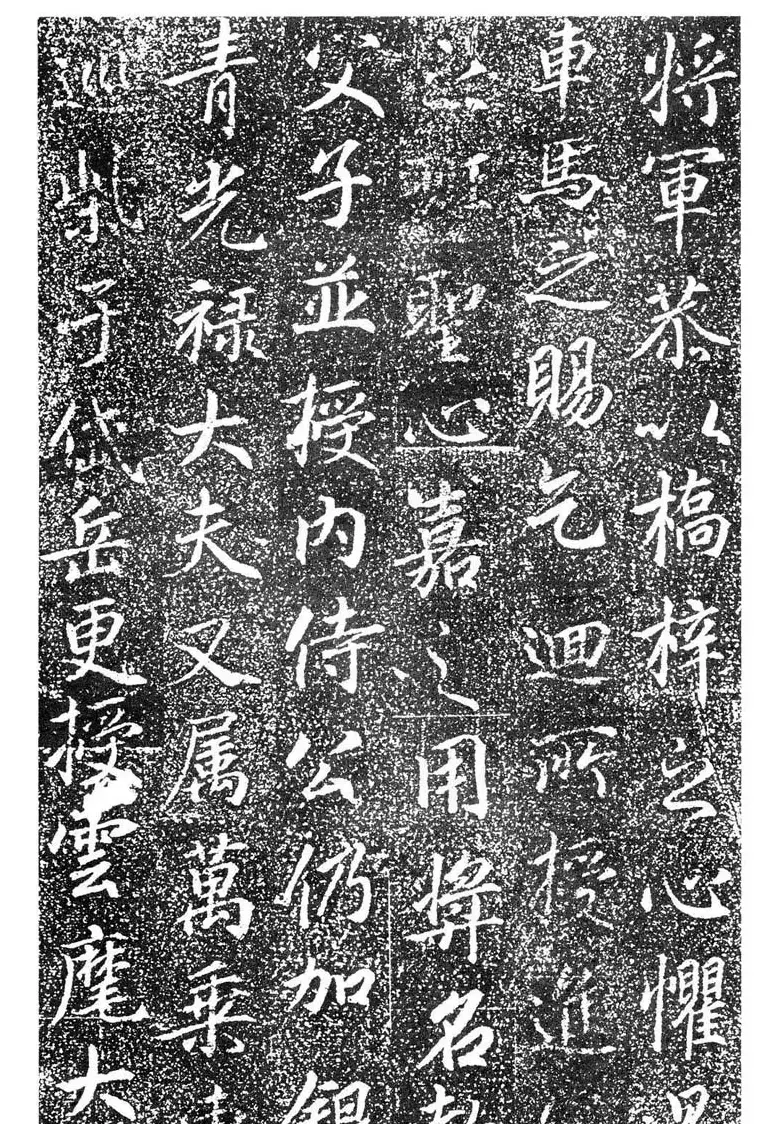 将軍恭以橋梓之心懼
車馬之賜乞迴所授進
聖心嘉之用奬名
父子並授内侍公仍加銀
青光禄大夫又属萬乗
巡柴于岱岳更授雲麾大